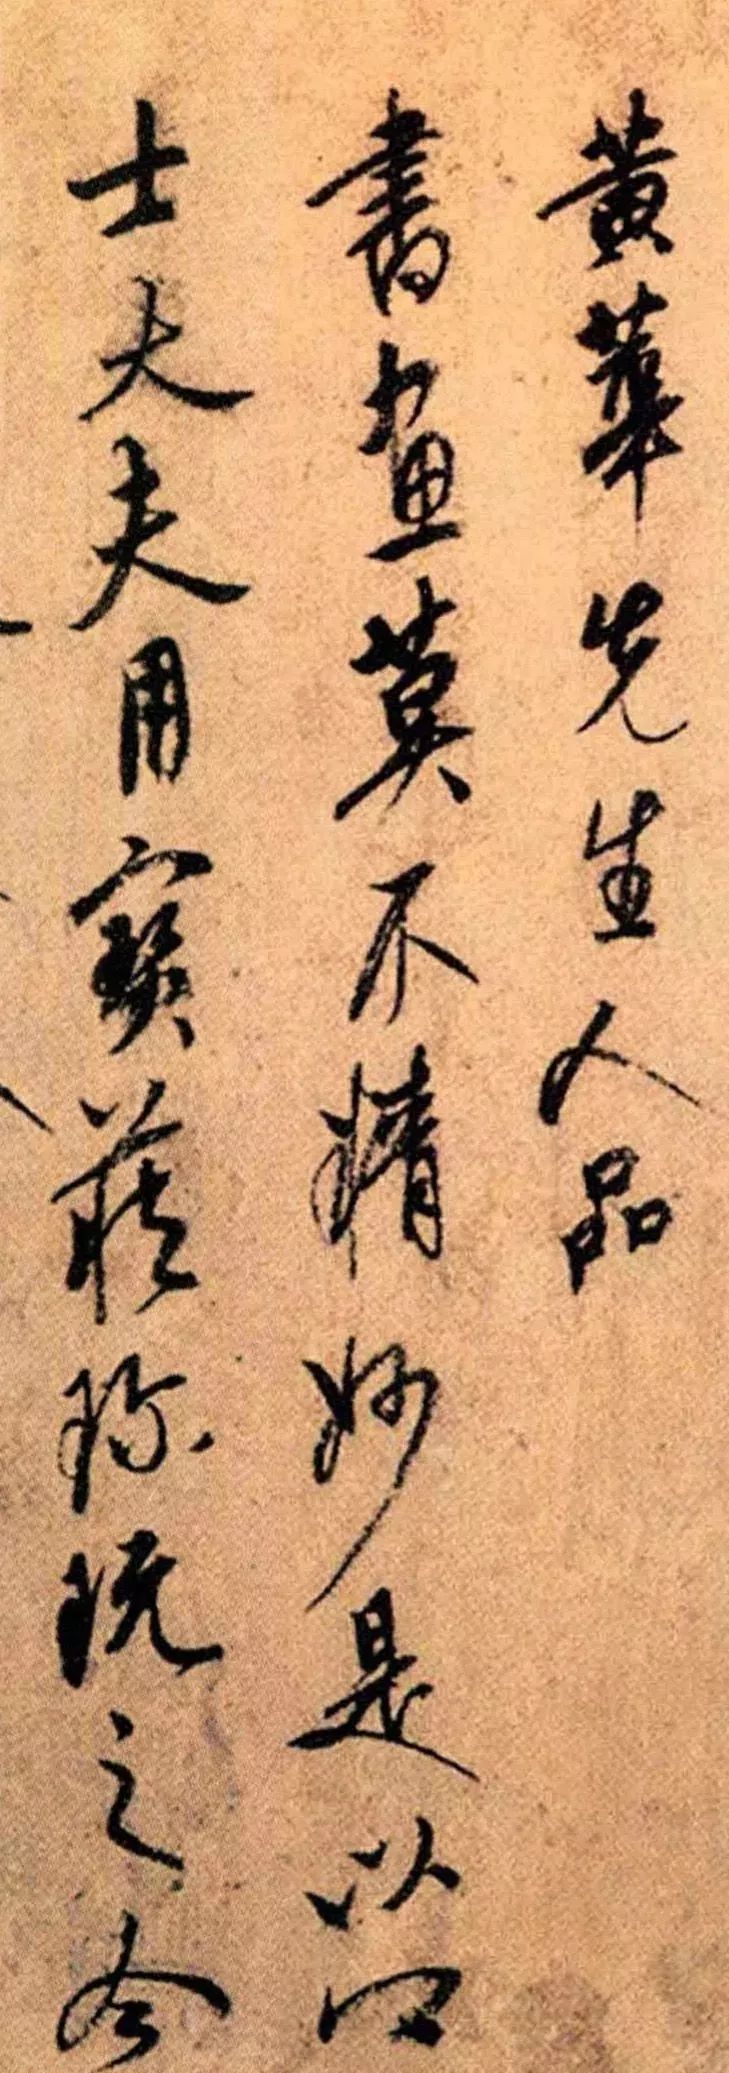 黄華先生人品
書畫莫不精妙是以四
士大夫用寶藏珎玩之今